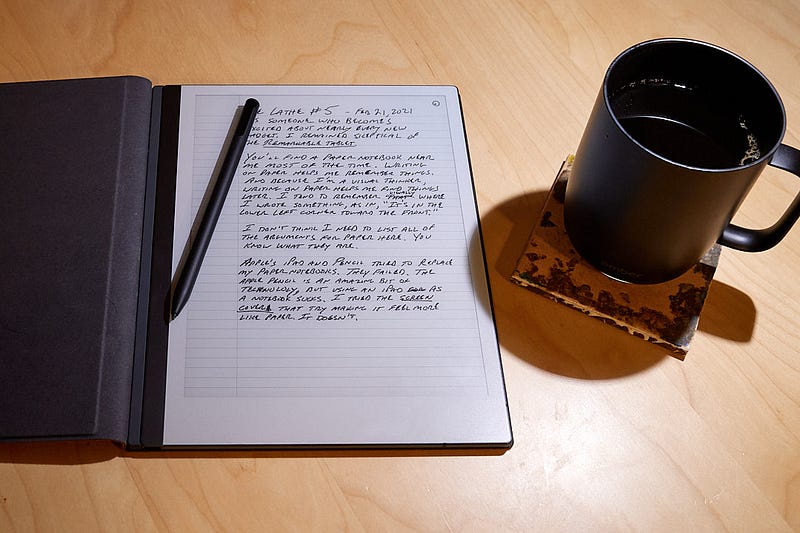 LATHE #5 - FEB 21, 2021
SOMEONE WHO BECOMES
EXCITED ABOUT NEARLY EVERY NEW
GADGET, I REMAINED SKEPTICAL OF
THE REMARKABLE TABLET.
YOU'LL FIND A PAPER NOTEBOOK NEAR
ME MOST OF THE TIME. WRITING
ON PAPER HELPS ME REMEMBER THINGS.
AND BECAUSE I'M A VISUAL THINKER,
WRITING ON PAPER HELPS ME FIND THINGS
LATER. I TEND TO REMEMBER VISUALLY WHERE
I WROTE SOMETHING, AS IN, "IT'S IN THE
LOWER LEFT CORNER TOWARD THE FRONT."
I DON'T THINK I NEED TO LIST ALL OF
THE ARGUMENTS FOR PAPER HERE. YOU
KNOW WHAT THEY ARE.
APPLE'S IPAD AND PENCIL TRIED TO REPLACE
MY PAPER NOTEBOOKS. THEY FAILED. THE
APPLE PENCIL IS AN AMAZING BIT OF
TECHNOLOGY, BUT USING AN IPAD AS
A NOTEBOOK SUCKS. I TRIED THE SCREEN
COVERS THAT TRY MAKING IT FEEL MORE
LIKE PAPER. IT DOESN'T.
ember